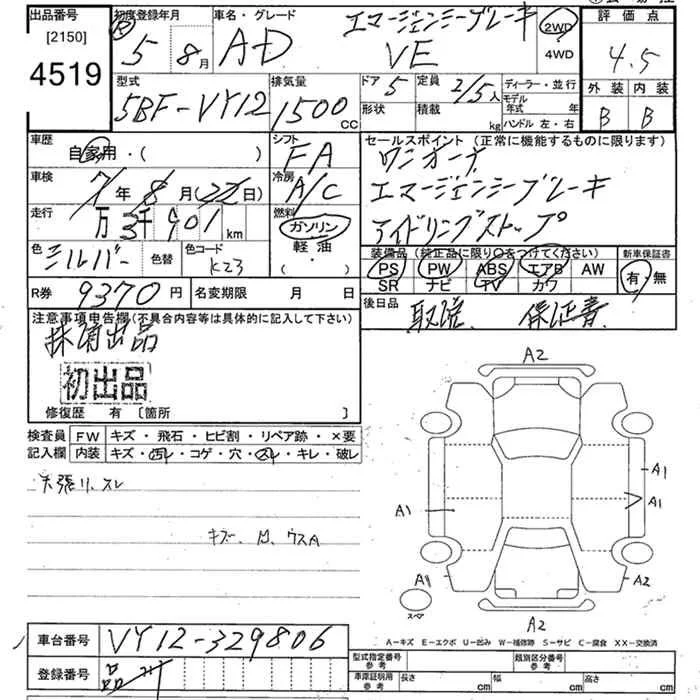 出品番号
[2150]
4519
初度登録年月
R 5年 8月
車名・グレード
AD
エマージェンシーブレーキ
VE
2WD
4WD
評価点
4.5
外装 内装
B B
型式
5BF-VY12
排気量
1500 CC
ドア 5
形状
定員 2/5人
積載 kg
ディーラー・並行
モデル年式 年
ハンドル 左・右
車歴
自家用・( )
シフト
FA
セールスポイント (正常に機能するものに限ります)
ワンオーナ
エマージェンシーブレーキ
アイドリングストップ
車検
7年 8月(22日)
冷房
A/C
走行
万 3千901 km
燃料
ガソリン
軽油
・
色
シルバー
色替
色コード
K23
装備品 (純正品に限り○をつけてください)
PS PW ABS エアB AW
SR ナビ TV カワ
新車保証書
有・無
R券 9370円
名変期限 月 日
後日品
取説、保証書
注意事項申告欄(不具合内容等は具体的に記入して下さい)
抹消出品
初出品
修復歴 有 〔箇所 〕
検査員
記入欄
FW キズ・飛石・ヒビ割・リペア跡・×要
内装 キズ・汚レ・コゲ・穴・スレ・キレ・破レ
天張リ、スレ
キズ、凹、ウスA
A2
A1
A1
A1
A1
A2
スペア
A2
A-キズ E-エクボ U-凹み W-補修跡 S-サビ C-腐食 XX-交換済
車台番号 VY12-329806
登録番号
型式指定番号 参考
類別区分番号 参考
車庫証明用 参考
長さ cm
幅 cm
高さ cm